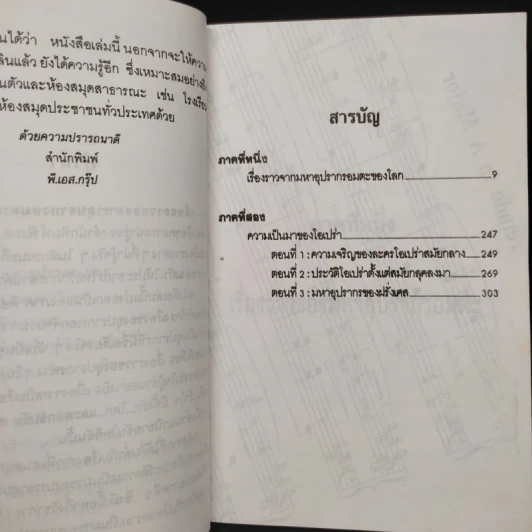 นได้ว่า หนังสือเล่มนี้ นอกจากจะให้ความ
ลินแล้ว ยังได้ความรู้อีก ซึ่งเหมาะสมอย่างยิ่
นตัวและห้องสมุดสาธารณะ เช่น โรงเรียน
ห้องสมุดประชาชนทั่วประเทศด้วย
ด้วยความปรารถนาดี
สำนักพิมพ์
พี.เอส.กรุ๊ป
สารบัญ
ภาคที่หนึ่ง
เรื่องราวจากมหาอุปรากรอมตะของโลก 9
ภาคที่สอง
ความเป็นมาของโอเปร่า 247
ตอนที่ 1 : ความเจริญของละครโอเปร่าสมัยกลาง 249
ตอนที่ 2 : ประวัติโอเปร่าตั้งแต่สมัยกลุคลงมา 269
ตอนที่ 3 : มหาอุปรากรของฝรั่งเศส 303